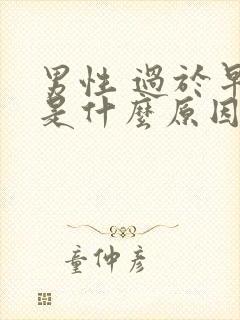 男性 過於早
是什麼原因
童仲彥